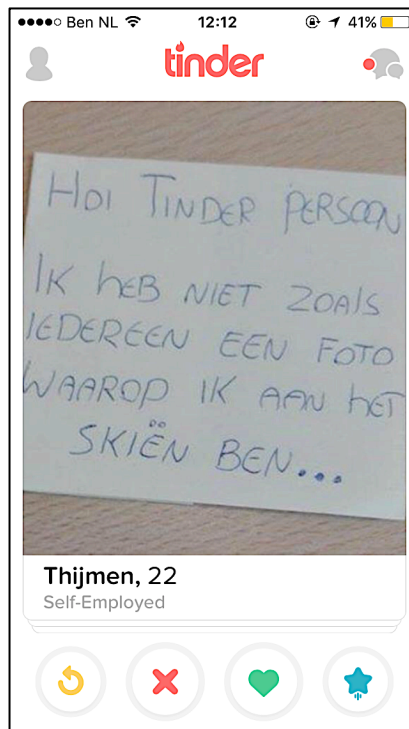 Ben NL 12:12 41%
tinder
HOI TINDER PERSOON
IK HEB NIET ZOALS
IEDEREEN EEN FOTO
WAAROP IK AAN HET
SKIËN BEN...
Thijmen, 22
Self-Employed